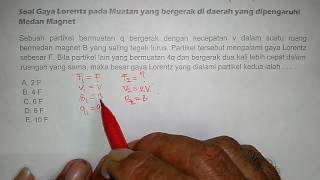 Soal Gaya Lorentz pada Muatan yang bergerak di daerah yang dipengaruhi
Medan Magnet
Sebuah partikel bermuatan q bergerak dengan kecepatan v dalam suatu ruang
bermedan magnet B yang saling tegak lurus. Partikel tersebut mengalami gaya Lorentz
sebesar F. Bila partikel lain yang bermuatan 4q dan bergerak dua kali lebih cepat dalam
ruangan yang sama, maka besar gaya Lorentz yang dialami partikel kedua ialah ....
A. 2 F
B. 4 F
C. 6 F
D. 8 F
E. 10 F
F₁ = F F₂ = ?
V₁ = V V₂ = 2V
B₁ = B₂ = B
q₁ =